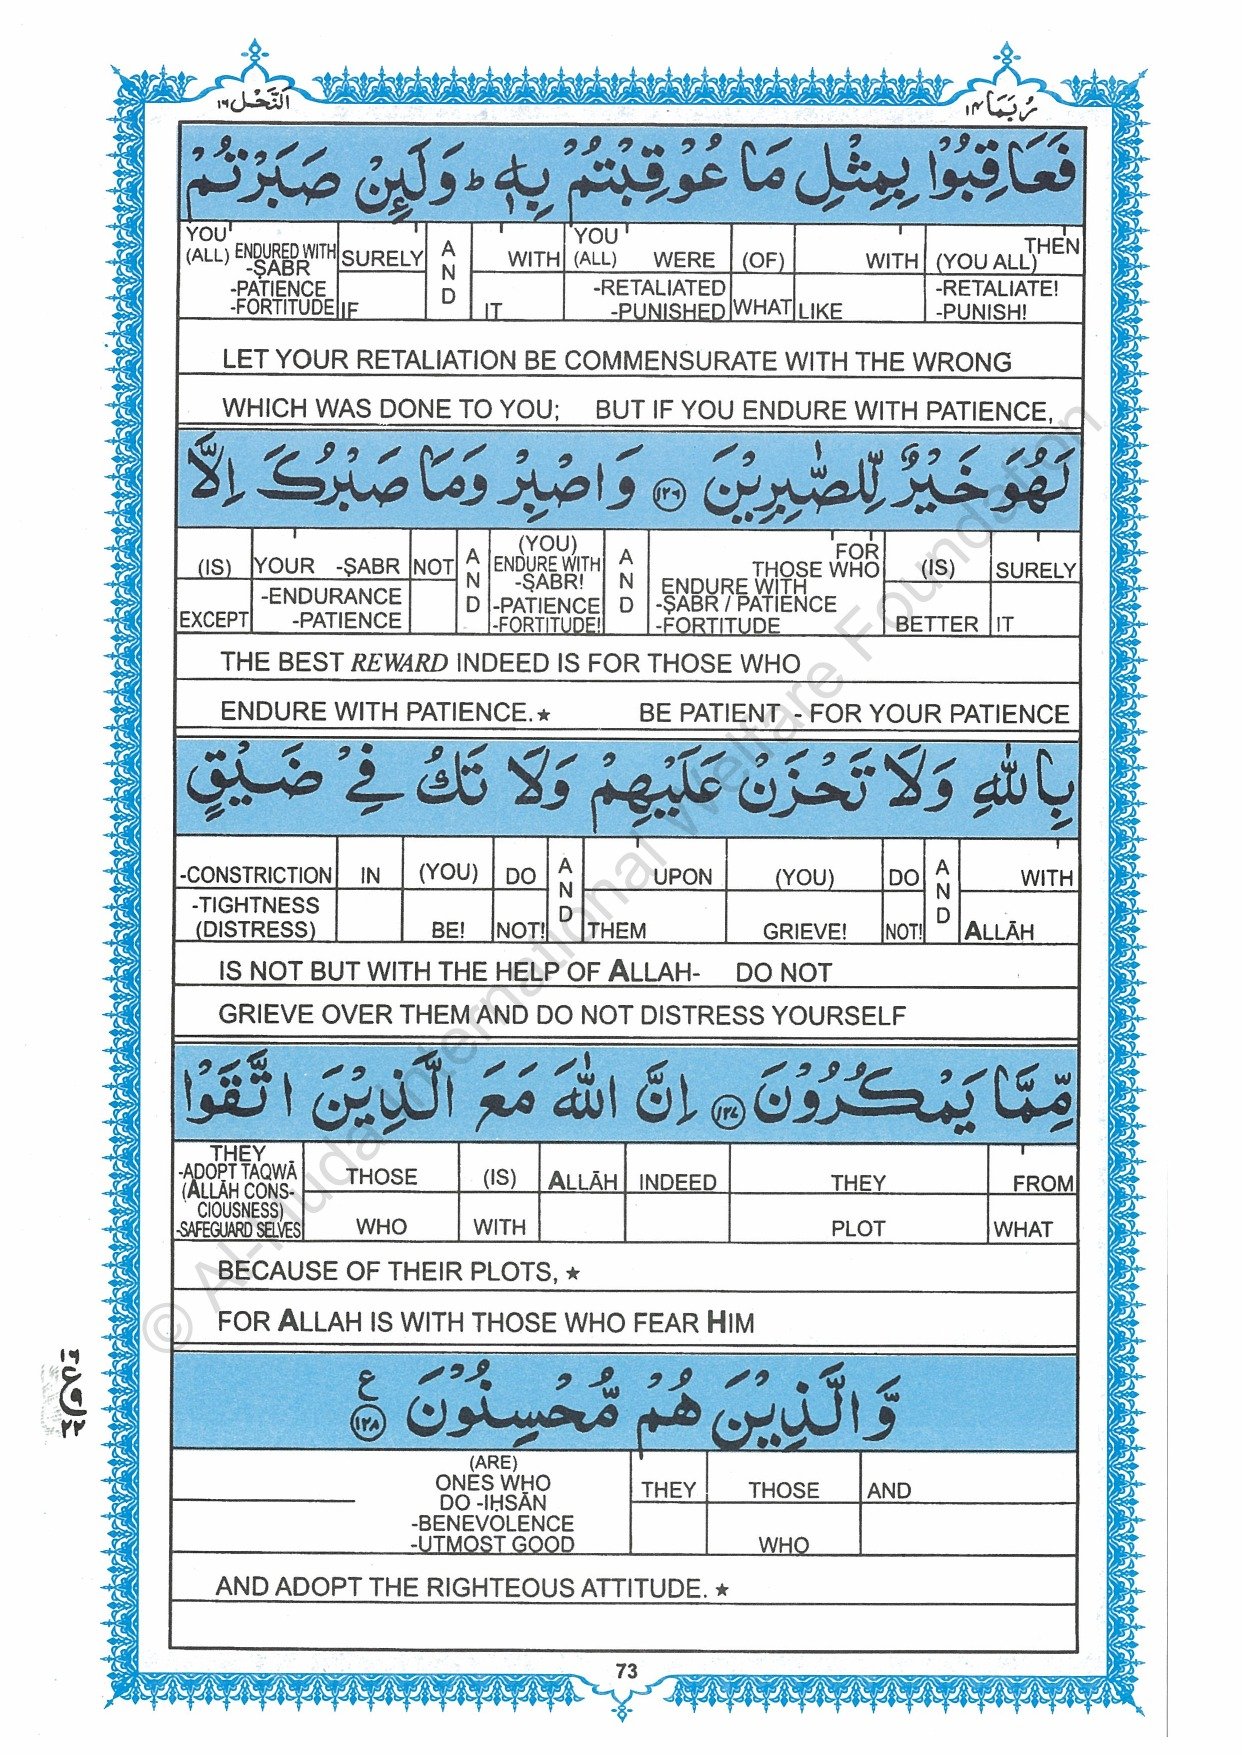 اَلنَّحْل ١٦
رُبَمَا ١٤
فَعَاقِبُوْا بِمِثْلِ مَا عُوْقِبْتُمْ بِهٖ ؕ وَلَئِنْ صَبَرْتُمْ
YOU (ALL) ENDURED WITH -ṢABR -PATIENCE -FORTITUDE SURELY IF AND WITH IT YOU (ALL) WERE -RETALIATED -PUNISHED (OF) WHAT WITH LIKE THEN (YOU ALL) -RETALIATE! -PUNISH!
LET YOUR RETALIATION BE COMMENSURATE WITH THE WRONG
WHICH WAS DONE TO YOU; BUT IF YOU ENDURE WITH PATIENCE,
لَهُوَ خَيْرٌ لِّلصّٰبِرِيْنَ ١٢٦ وَاصْبِرْ وَمَا صَبْرُكَ اِلَّا
(IS) EXCEPT YOUR -ṢABR -ENDURANCE -PATIENCE NOT AND (YOU) ENDURE WITH -ṢABR! -PATIENCE -FORTITUDE! AND FOR THOSE WHO ENDURE WITH -ṢABR / PATIENCE -FORTITUDE (IS) BETTER SURELY IT
THE BEST REWARD INDEED IS FOR THOSE WHO
ENDURE WITH PATIENCE.★ BE PATIENT - FOR YOUR PATIENCE
بِاللّٰهِ وَلَا تَحْزَنْ عَلَيْهِمْ وَلَا تَكُ فِيْ ضَيْقٍ
-CONSTRICTION -TIGHTNESS (DISTRESS) IN (YOU) BE! DO NOT! AND UPON THEM (YOU) GRIEVE! DO NOT! AND WITH ALLĀH
IS NOT BUT WITH THE HELP OF ALLAH- DO NOT
GRIEVE OVER THEM AND DO NOT DISTRESS YOURSELF
مِّمَّا يَمْكُرُوْنَ ١٢٧ اِنَّ اللّٰهَ مَعَ الَّذِيْنَ اتَّقَوْا
THEY -ADOPT TAQWĀ (ALLĀH CONS-CIOUSNESS) -SAFEGUARD SELVES THOSE WHO (IS) WITH ALLĀH INDEED THEY PLOT FROM WHAT
BECAUSE OF THEIR PLOTS, ★
FOR ALLAH IS WITH THOSE WHO FEAR HIM
وَّالَّذِيْنَ هُمْ مُّحْسِنُوْنَ ١٢٨ ع
١٦
ع
٢٢
(ARE) ONES WHO DO -IḤSĀN -BENEVOLENCE -UTMOST GOOD THEY THOSE WHO AND
AND ADOPT THE RIGHTEOUS ATTITUDE. ★
73
© Al-Huda International Welfare Foundation